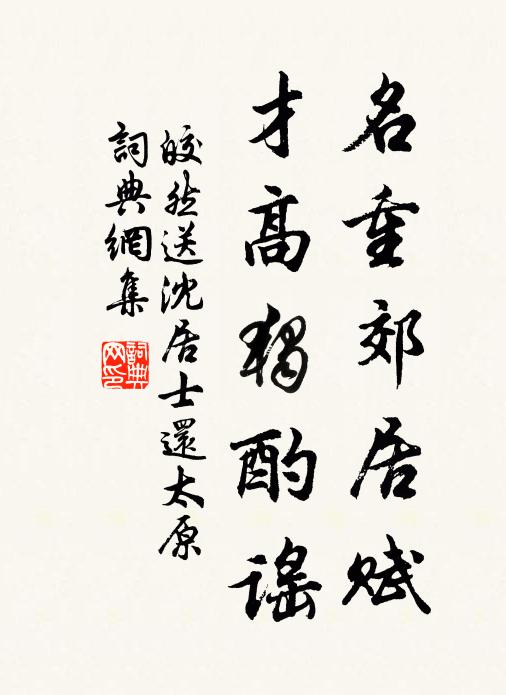 名重郊居赋
才高獨酌謠
皎然送沈居士還太原
詞典網集
詞典网印